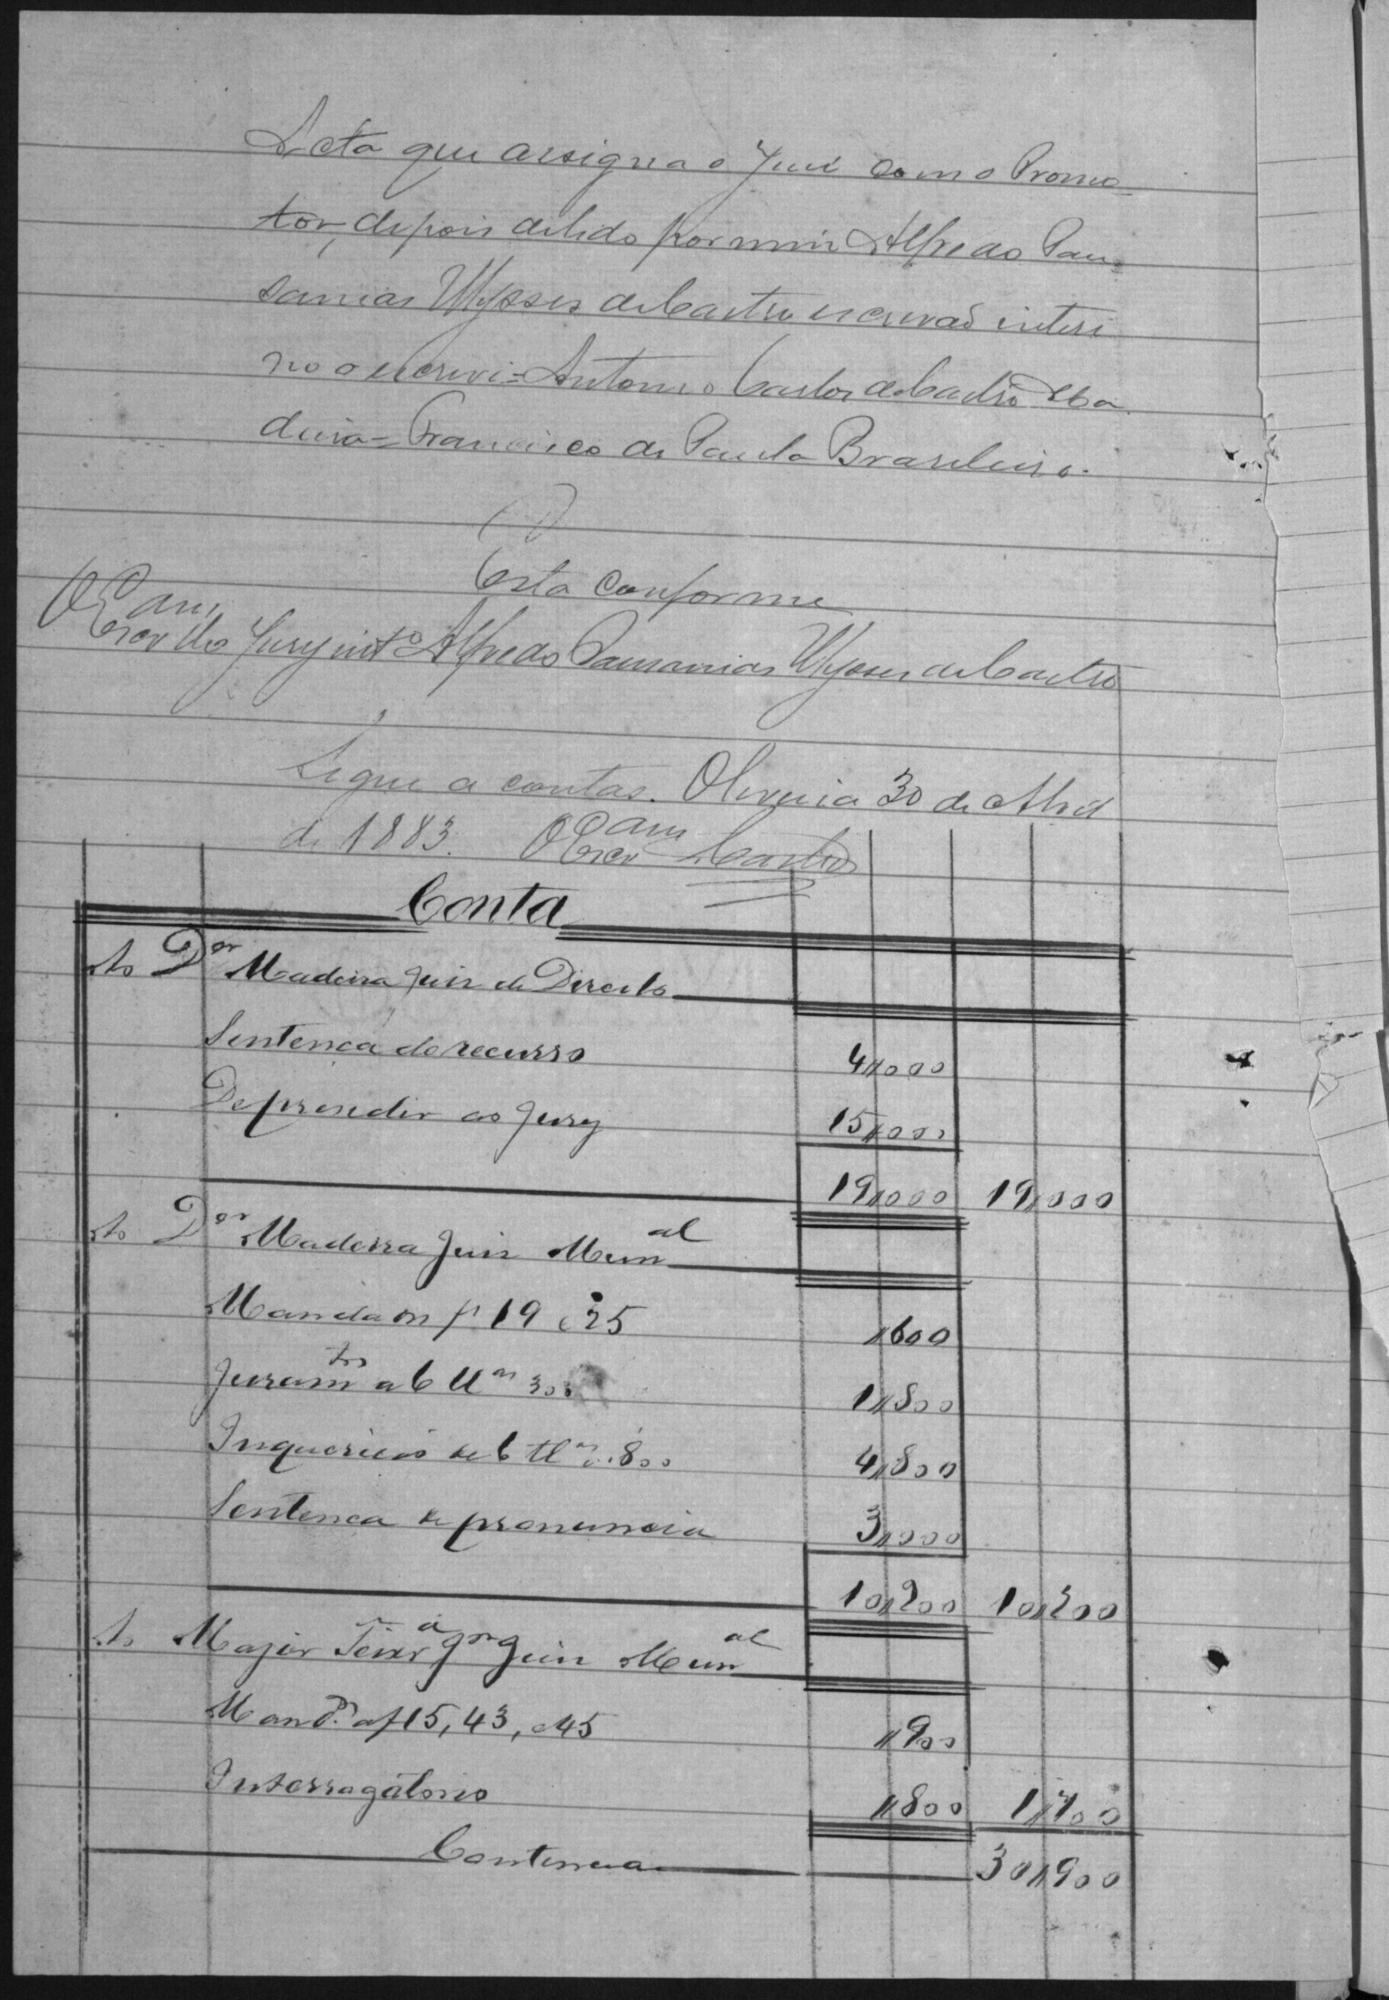 Acta que assigna o Juiz com o Promo-
tor, depois de lido por mim Alfredo Pau-
sanias Ulysses de Castro escrivaõ interi
no o escrevi = Antonio Carlos de Castro Ma
deira = Francisco de Paula Brasileiro.
Esta conforme
O Escram do Jury intº Alfredo Pausanias Ulysses de Castro
Segue a contas. Oliveira 30 de Abril
de 1883. O Escram Castro
Conta
Ao Dor Madeira Juiz de Direito
Sentenca do recurso 4,,000
De prendir ao Jury 15,,000
19,,000 19,,000
Ao Dor Madeira Juiz Munal
Mandados f 19 e 25 ,,600
Juramtos a 6 ttas 300 1,,800
Inquericaõ de 6 ttas a 800 4,,800
Sentenca de pronuncia 3,,000
10,,200 10,,200
Ao Major Juiz Munal
Mandos af 15, 43, e 45 ,,900
Interrogatorio ,,800 1,,700
Continua 30,,900